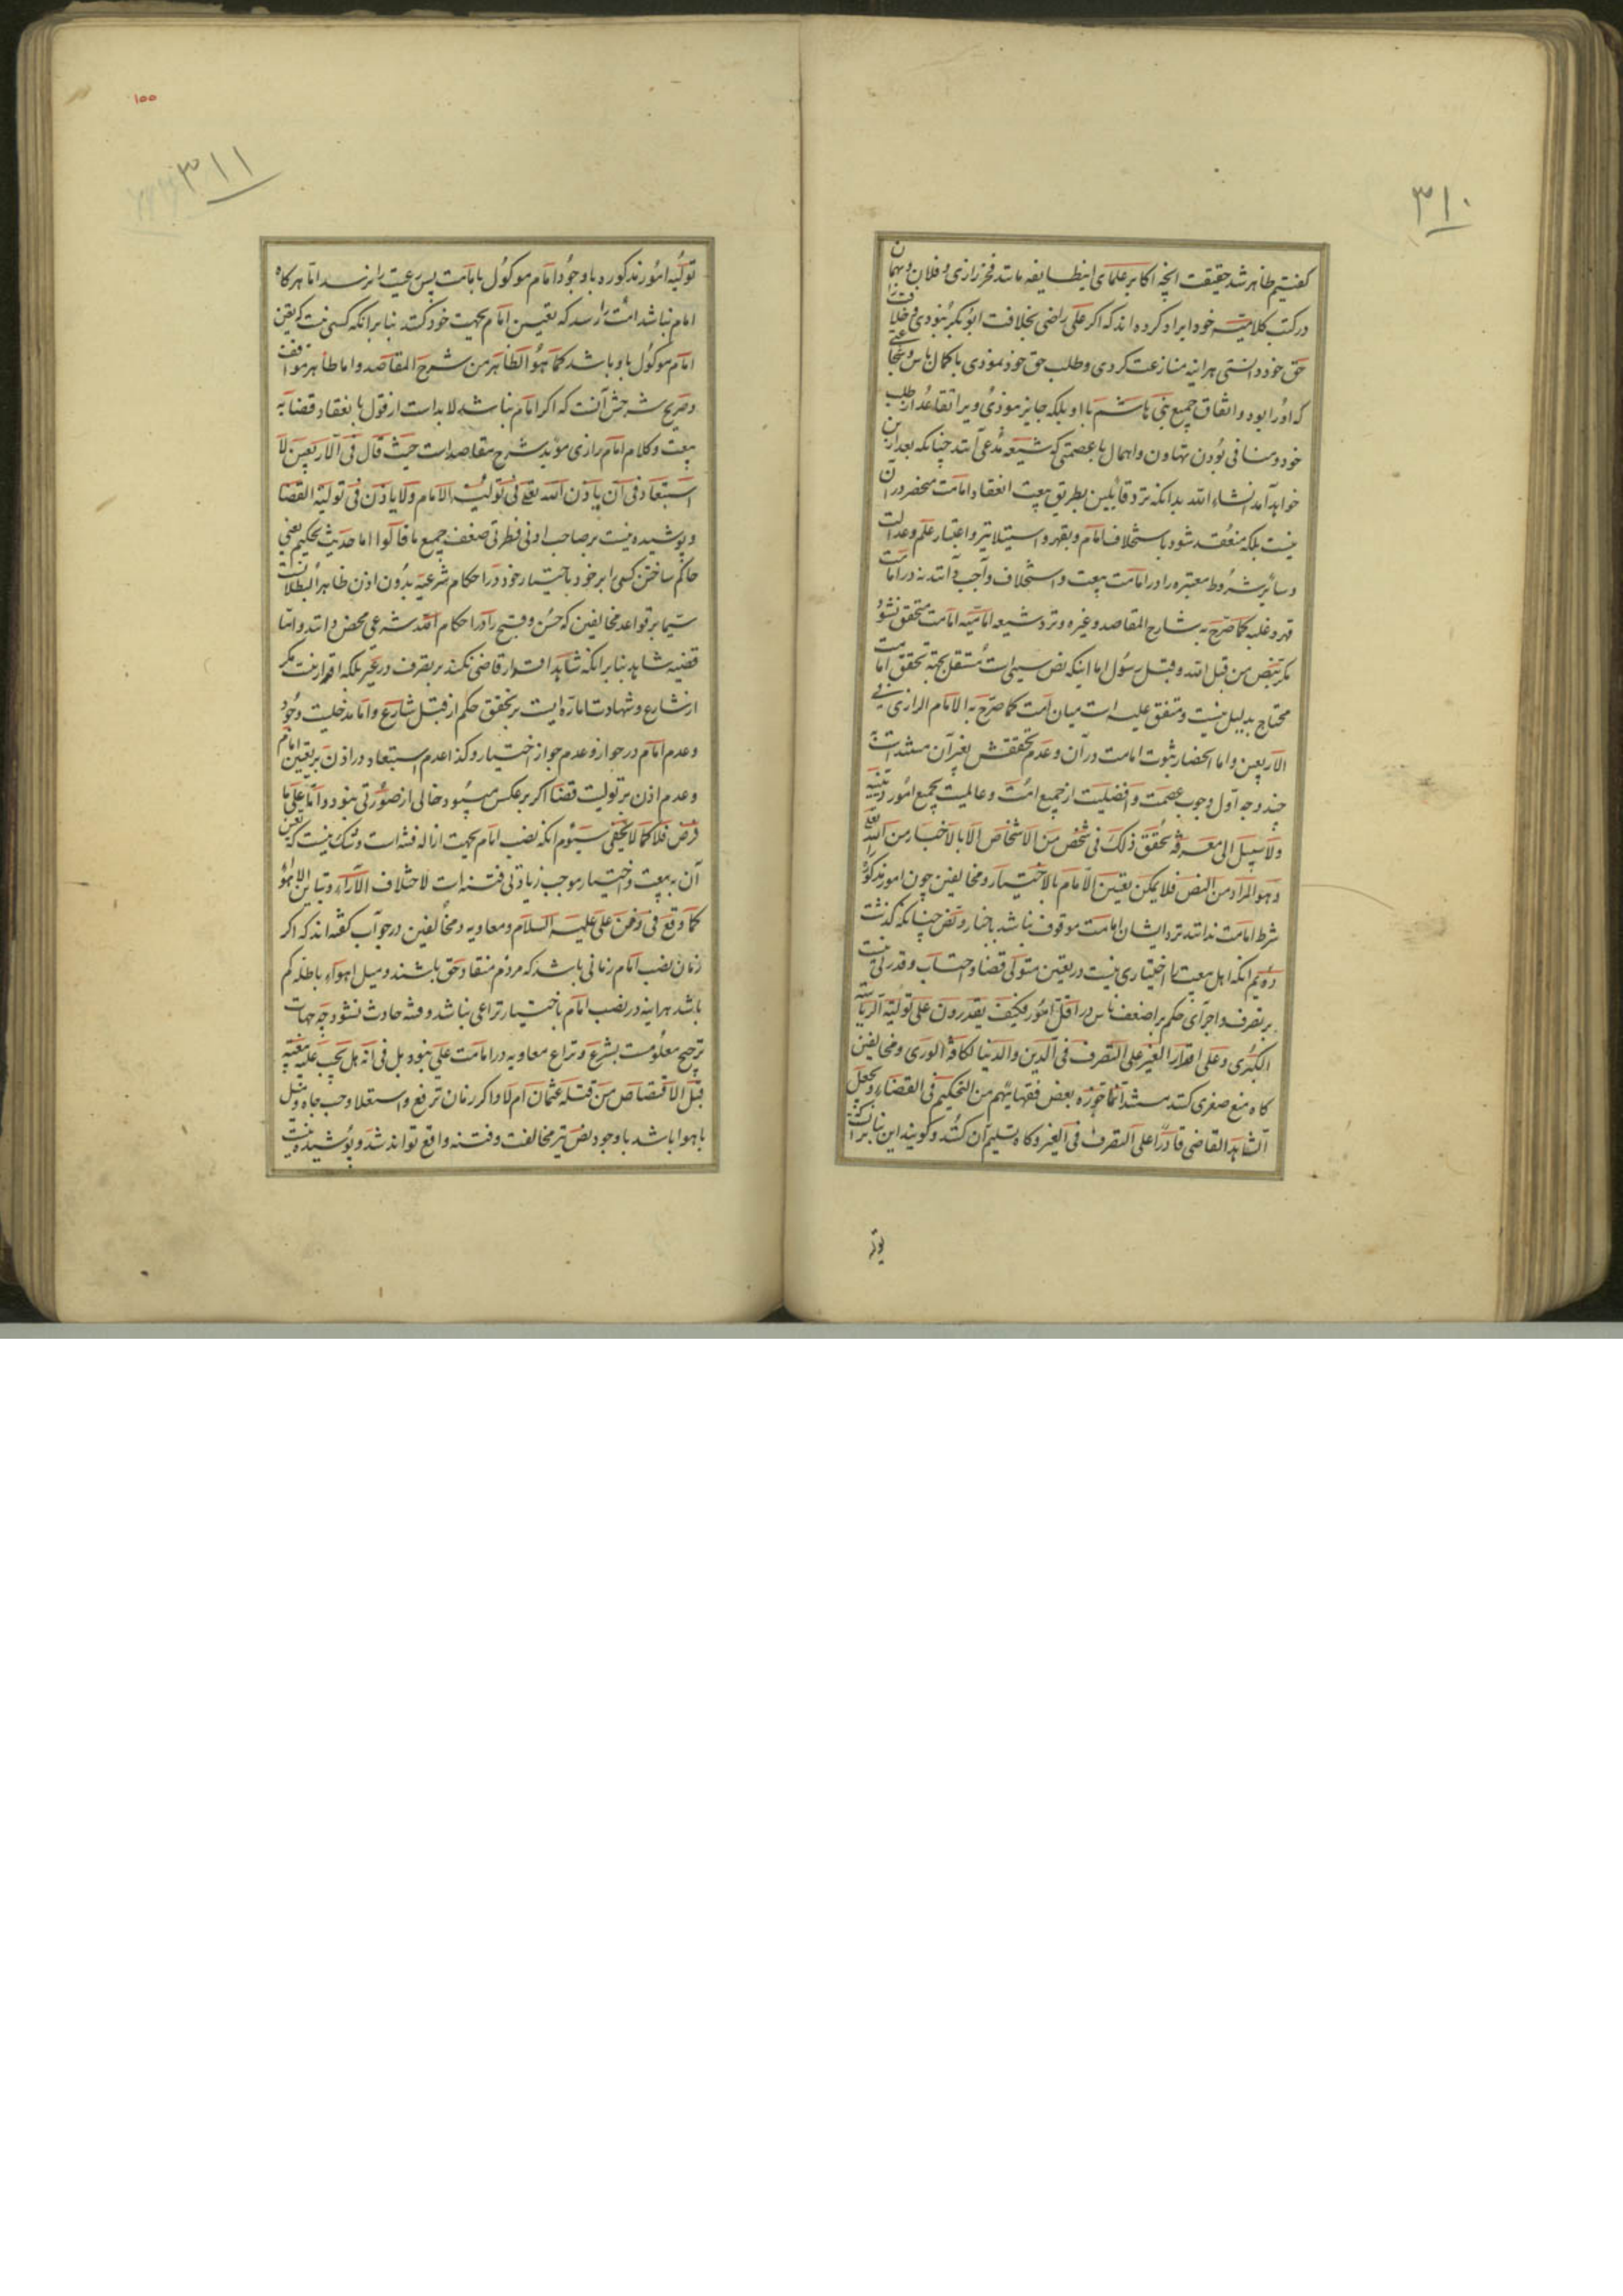 ۳۱۰
کفتیم ظاهر شد حقیقت انچه اکابر علمای اینطایفه مانند فخر رازی و فلان و بهمان
در کتب کلامیه خود ایراد کرده اند که اکر علی راضی بخلافت ابو بکر نبودی و خلافت را
حق خود دانستی هراینه منازعت کردی و طلب حق خود نمودی با کمال باس و شجاعتی
که او را بود و اتفاق جمیع بنی هاشم با او بلکه جایز نبودی ویرا تقاعد از طلب
خود و منافی بودن تهاون و اهمال با عصمتی که شیعه مدعی آنند چنانکه بعد ازین
خواهد آمد انشاء الله بدانکه نزد قائلین بطریق بیعت انعقاد امامت منحصر در آن
نیست بلکه منعقد شود باستخلاف امام و بقهر و استیلا نیز و اعتبار علم و عدالت
و سائر شروط معتبره را در امامت بیعت و استخلاف واجب دانند نه در امامت
قهر و غلبه کما صرح به شارح المقاصد و غیره و نزد شیعه امامیه امامت متحقق نشود
مکر بنص من قبل الله و قبل رسول اما اینکه نص سببی است مستقل بجهة تحقق امامت
محتاج بدلیل نیست و متفق علیه است میان امت کما صرح به الامام الرازی فی
الاربعین و اما انحصار ثبوت امامت در آن و عدم تحققش بغیر آن مستند است به
چند وجه اول وجوب عصمت و افضلیت از جمیع امت و عالمیت بجمیع امور دینیه
ولا سبیل الی معرفة تحقق ذلک فی شخص من الاشخاص الا بالاخبار من الله تعالی
و هو المراد من النص فلا یمکن تعیین الامام بالاختیار و مخالفین چون امور مذکوره را
شرط امامت ندانند نزد ایشان امامت موقوف نباشد باخبار و نص چنانکه کذشت
دویم انکه اهل بیعت را اختیاری نیست در تعیین متولی قضا و احتساب و قدرتی نیست
بر تصرف و اجرای حکم بر اضعف ناس در اقل امور فکیف یقدرون علی تولیة الریاسة
الکبری و علی اقدار الغیر علی التصرف فی الدین والدنیا لکافة الوری و مخالفین
کاه منع صغری کنند مستندا بما جوزه بعض فقهائهم من التحکیم فی القضاء و بجعل
الشاهد القاضی قادرا علی التصرف فی الغیر و کاه تسلیم آن کنند و کویند این بنابر آنست که
تولیه
۱۰۰
۳۱۱
تولیه امور مذکوره با وجود امام موکول بامامت پس رعیت را نرسد اما هرکاه
امام نباشد امت را رسد که تعیین امام بجهت خود کنند بنابر انکه کسی نیست که تعیین
امام موکول باو باشد کما هو الظاهر من شرح المقاصد و اما ظاهر مواقف
و صریح شرحش آنست که اکر امام نباشد لا بد است از قول بانعقاد قضا به
بیعت و کلام امام رازی مؤید شرح مقاصد است حیث قال فی الاربعین لا
استبعاد فی ان یاذن الله تعالی فی تولیة الامام ولا یاذن فی تولیة القضا
و پوشیده نیست بر صاحب ادنی فطرتی ضعف جمیع ما قالوا اما حدیث تحکیم یعنی
حاکم ساختن کسی را بر خود باختیار خود در احکام شرعیه بدون اذن ظاهر البطلانست
سیما بر قواعد مخالفین که حسن و قبح را در احکام الله شرعی محض دانند و اما
قضیه شاهد بنابر انکه شاهد اقدار قاضی نکند بر تصرف در غیر بلکه اقدار نیست مکر
از شارع و شهادت اماره ایست بر تحقق حکم از قبل شارع و اما مدخلیت وجود
و عدم امام در جواز و عدم جواز اختیار و کذا عدم استبعاد در اذن بر تعیین امام
و عدم اذن بر تولیت قضا اکر بر عکس میبود خالی از صورتی نبود و اما علی ما
فرض فلا کما لا یخفی سیوم انکه نصب امام بجهت ازاله فتنه است و شک نیست که تعیین
آن به بیعت و اختیار موجب زیادتی فتنه است لاختلاف الآراء و تباین الاهواء
کما وقع فی زمن علی علیه السلام و معاویه و مخالفین در جواب کفته اند که اکر
زمان نصب امام زمانی باشد که مردم منقاد حق باشند و میل اهواء باطله کم
باشد هراینه در نصب امام باختیار نزاعی نباشد و فتنه حادث نشود چه جهات
ترجیح معلومست بشرع و نزاع معاویه در امامت علی نبود بل فی انه هل یجب علیه بیعته
قبل الاقتصاص من قتلة عثمان ام لا و اکر زمان ترفع و استعلا و حب جاه و میل
باهوا باشد با وجود نص نیز مخالفت و فتنه واقع تواند شد و پوشیده نیست